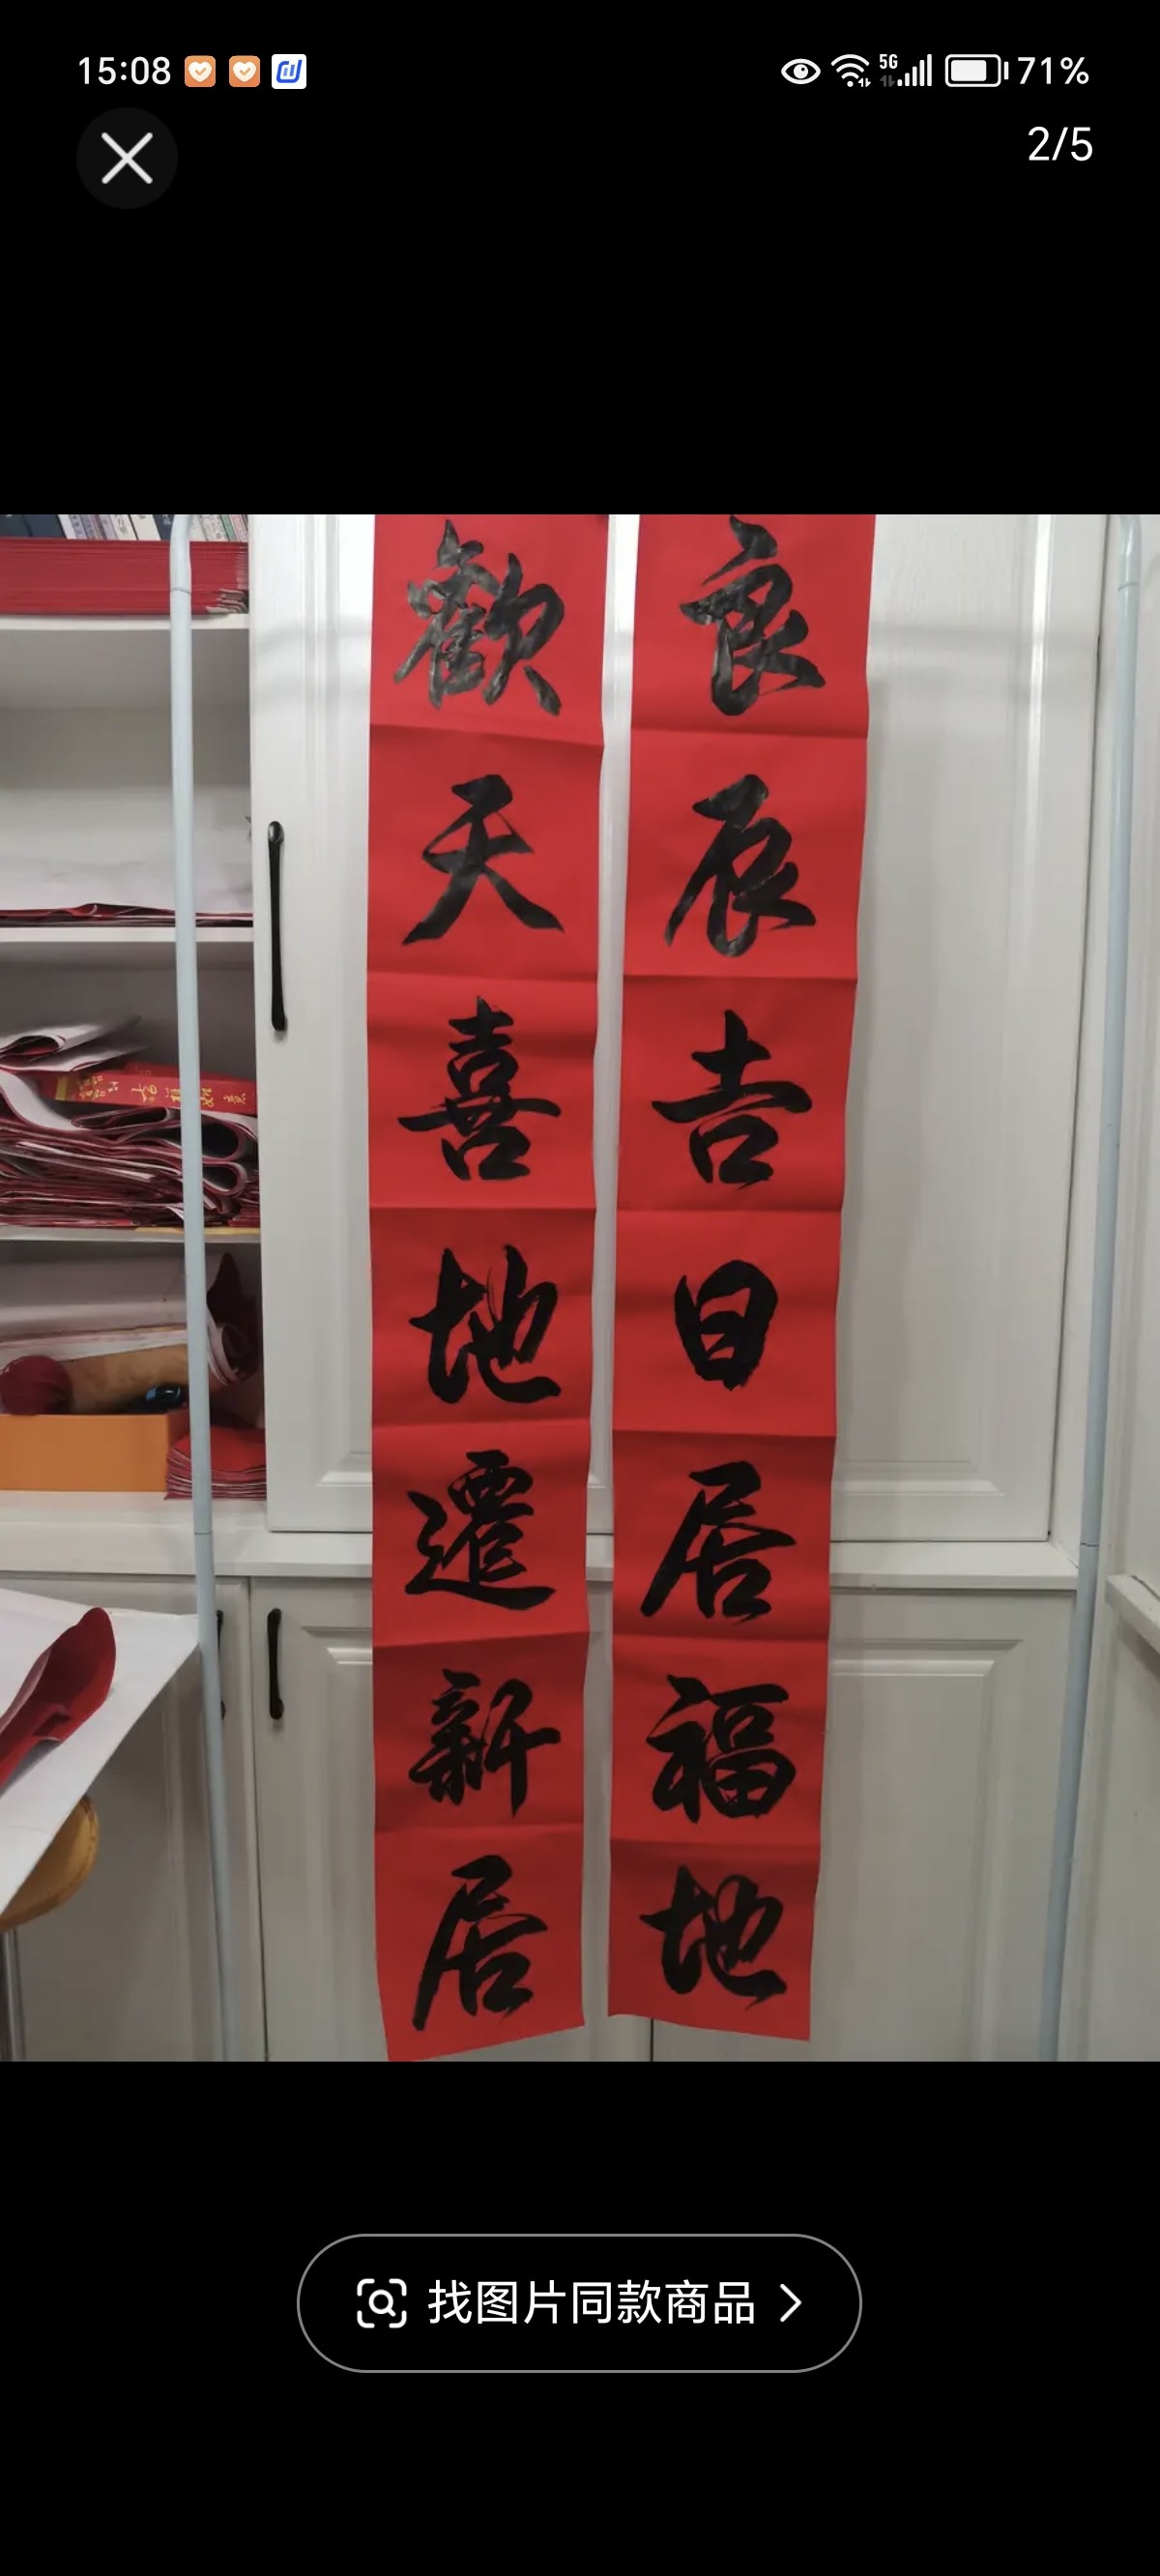 15:08
5G
71%
2/5
良辰吉日居福地
歡天喜地遷新居
找图片同款商品